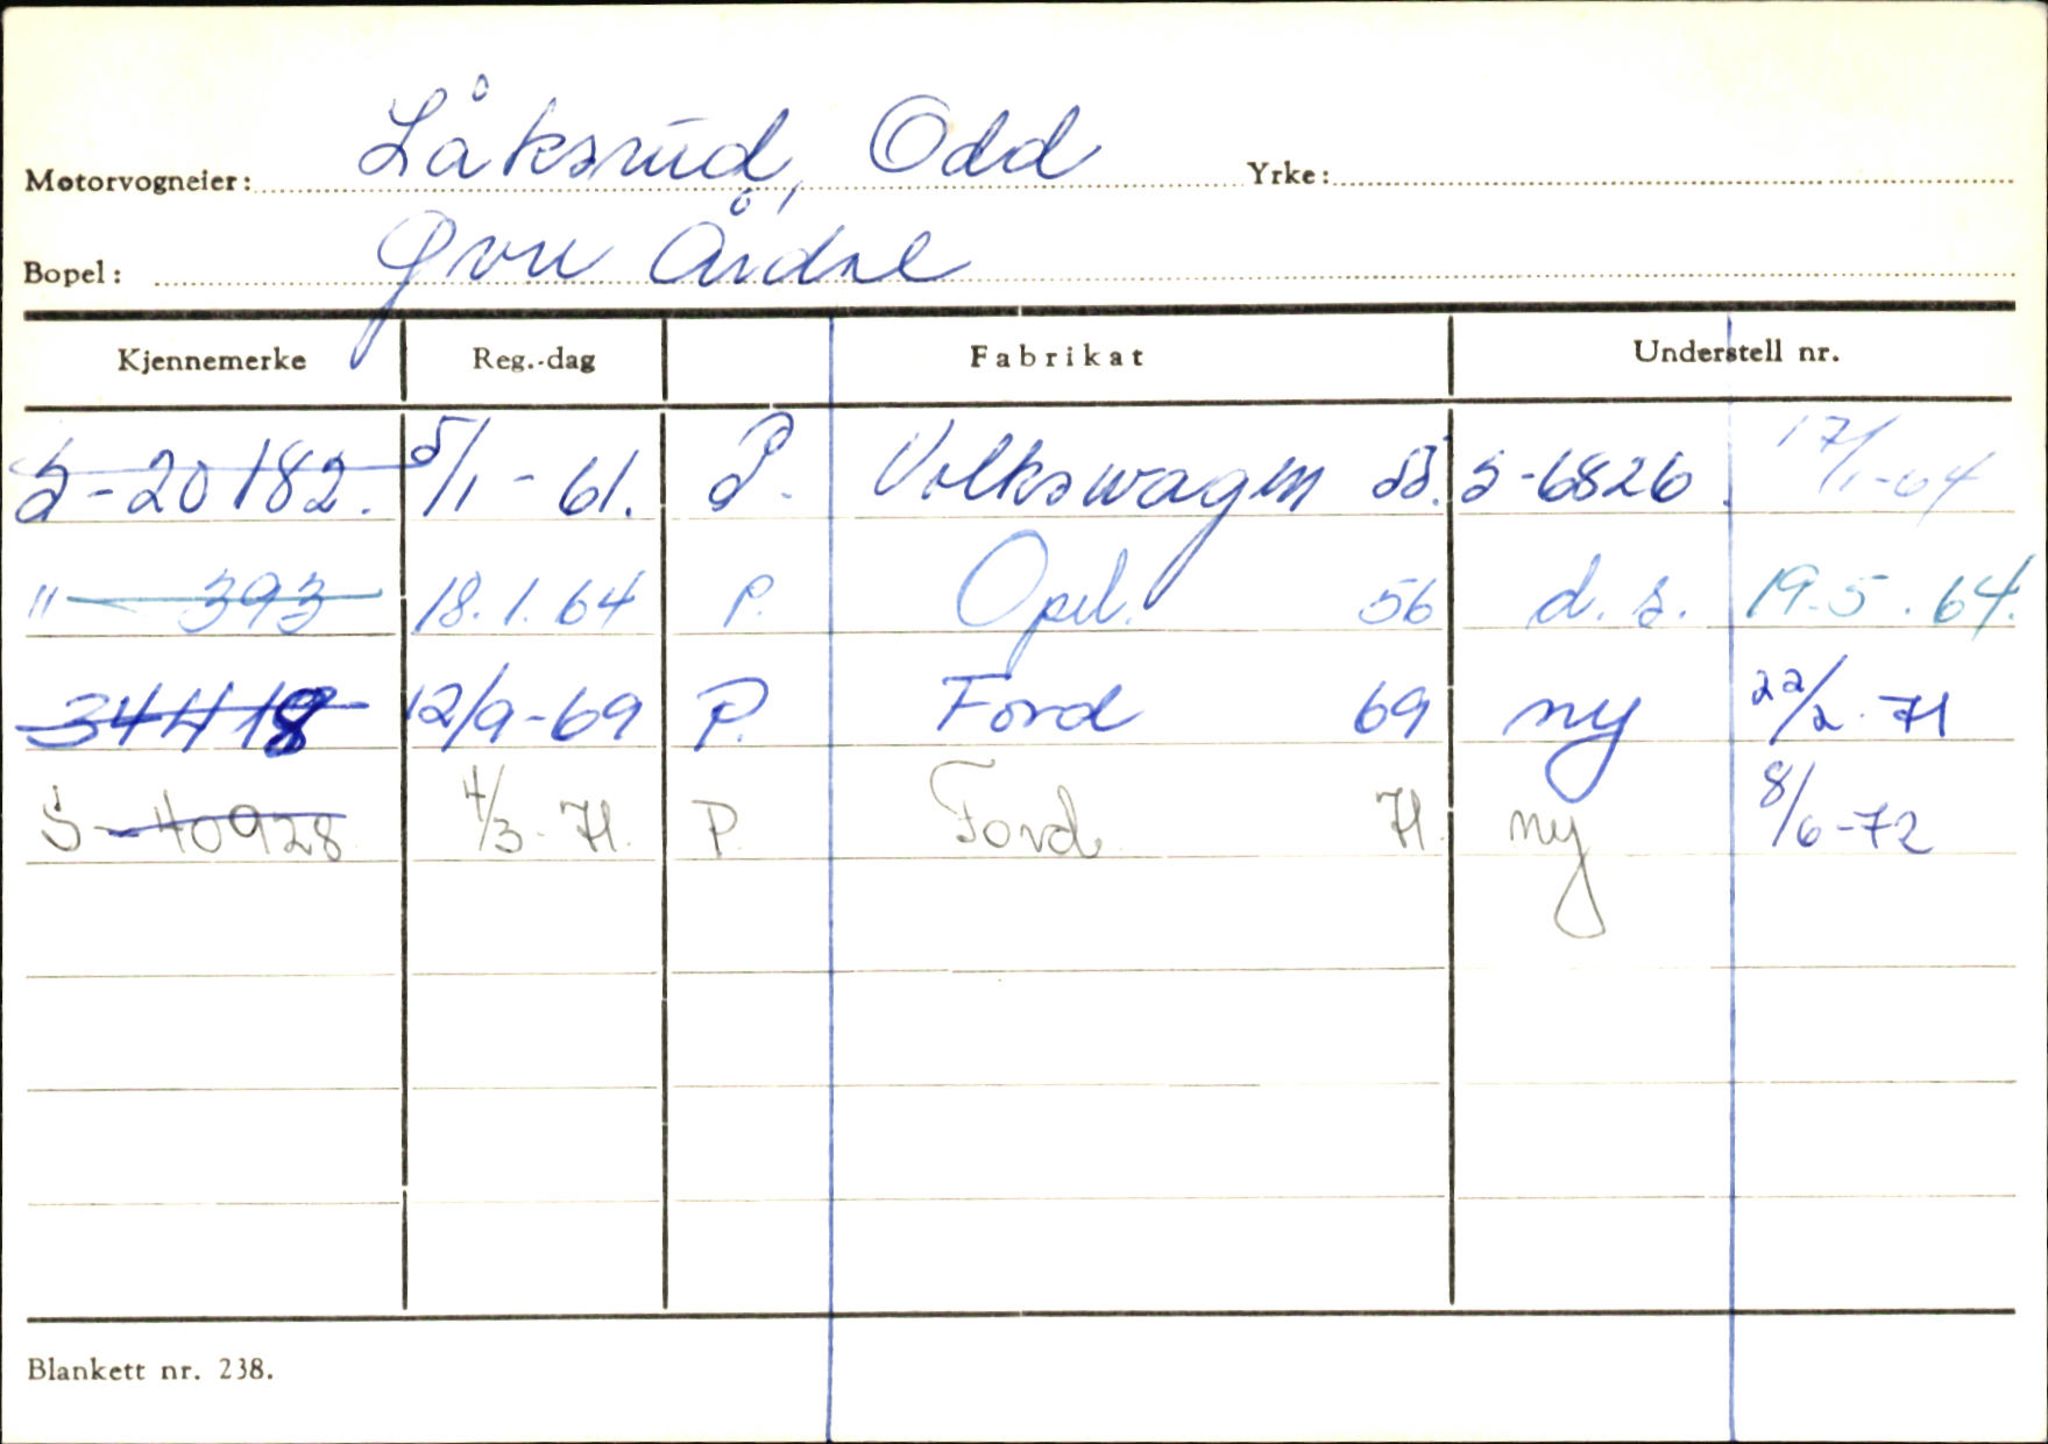 Motorvogneier: Låksrud, Odd Yrke:
Bopel: Øvre Årdal
Kjennemerke Reg.-dag Fabrikat Understell nr.
S-20182. 5/1-61. P. Volkswagen 53. S-6826. 17/1-64
" 393 18.1.64 P. Opel. 56 d.s. 19.5.64.
34418 12/9-69 P. Ford 69 ny 22/2-71
S-40928 4/3-71. P. Ford 71. ny 8/6-72
Blankett nr. 238.